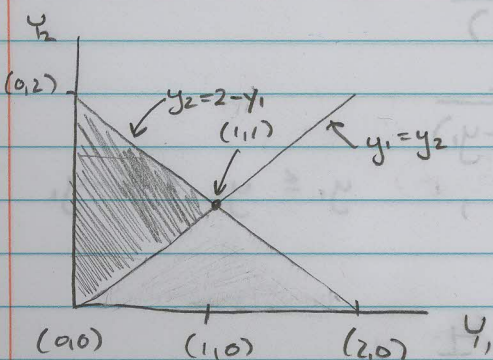 Y₂
(0,2)
y₂=2-y₁
(1,1)
y₁=y₂
(0,0)
(1,0)
(2,0)
Y₁